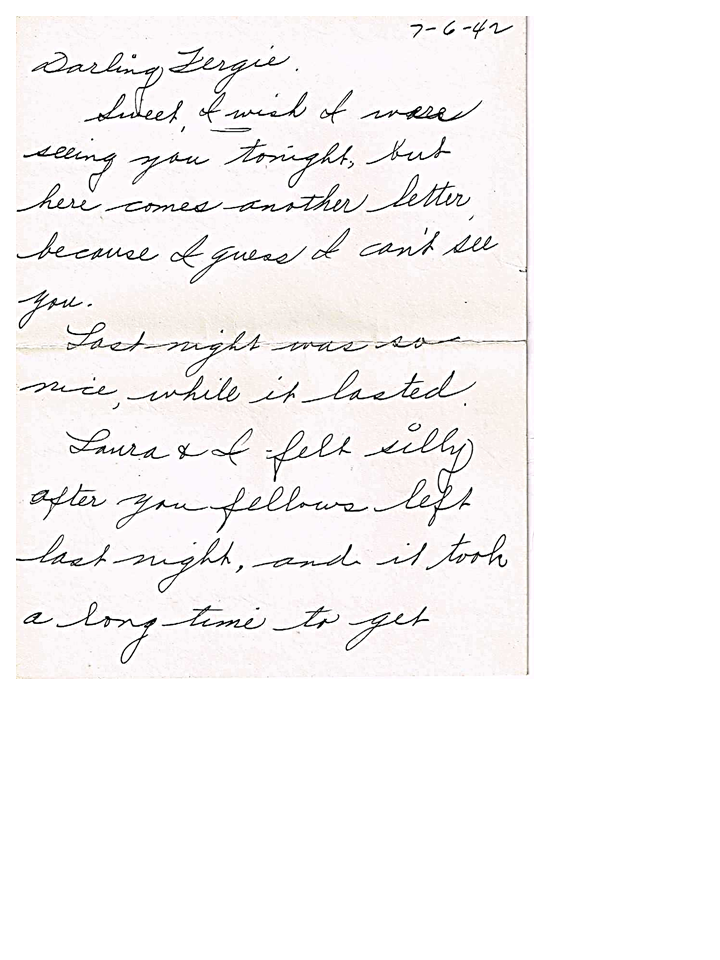 7-6-42
Darling Fergie.
Sweet, I wish I were
seeing you tonight, but
here comes another letter,
because I guess I can't see
you.
Last night was so
nice, while it lasted.
Laura & I felt silly
after you fellows left
last night, and it took
a long time to get